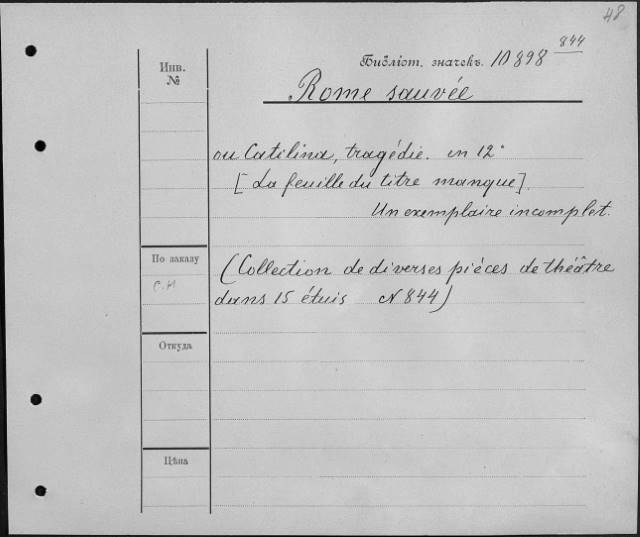 48
844
Инв. №
Библіот. значекъ. 10898
Rome sauvée
ou Catilina, tragédie. in 12°
[La feuille du titre manque].
Un exemplaire incomplet.
По заказу
(Collection de diverses pièces de théâtre
dans 15 étuis N 844)
Откуда
Цѣна